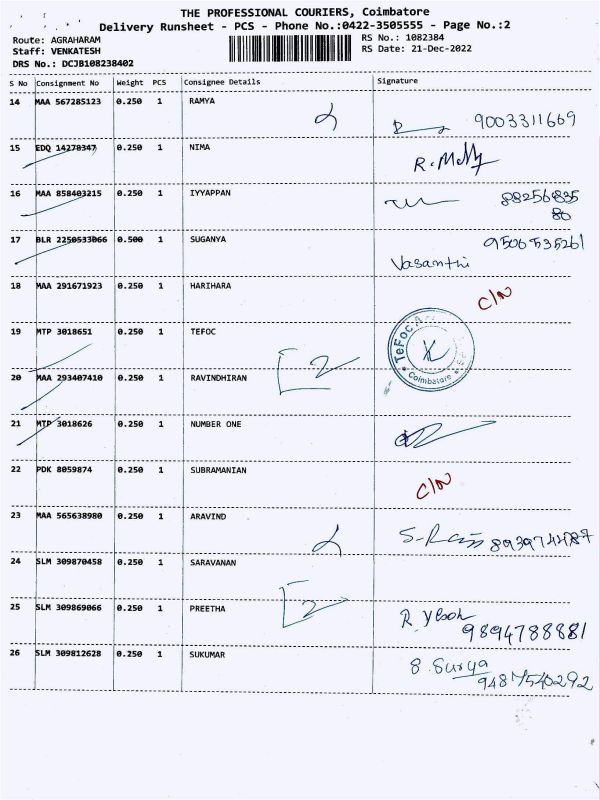 THE PROFESSIONAL COURIERS, Coimbatore
Delivery Runsheet - PCS - Phone No.:0422-3505555 - Page No.:2
Route: AGRAHARAM RS No.: 1082384
Staff: VENKATESH RS Date: 21-Dec-2022
DRS No.: DCJB108238402
S No Consignment No Weight PCS Consignee Details Signature
14 MAA 567285123 0.250 1 RAMYA 9003311669
15 EDQ 14278347 0.250 1 NIMA
16 MAA 858403215 0.250 1 IYYAPPAN 88256835
80
17 BLR 2250533066 0.500 1 SUGANYA 9506535261
Vasanthi
18 MAA 291671923 0.250 1 HARIHARA C/N
19 MTP 3018651 0.250 1 TEFOC
TeFoc
Coimbatore
20 MAA 293407410 0.250 1 RAVINDHIRAN 2
21 MTP 3018626 0.250 1 NUMBER ONE
22 PDK 8059874 0.250 1 SUBRAMANIAN C/N
23 MAA 565638980 0.250 1 ARAVIND
24 SLM 309870458 0.250 1 SARAVANAN
25 SLM 309869066 0.250 1 PREETHA 2
9894788881
26 SLM 309812628 0.250 1 SUKUMAR S. Surya
9487540292